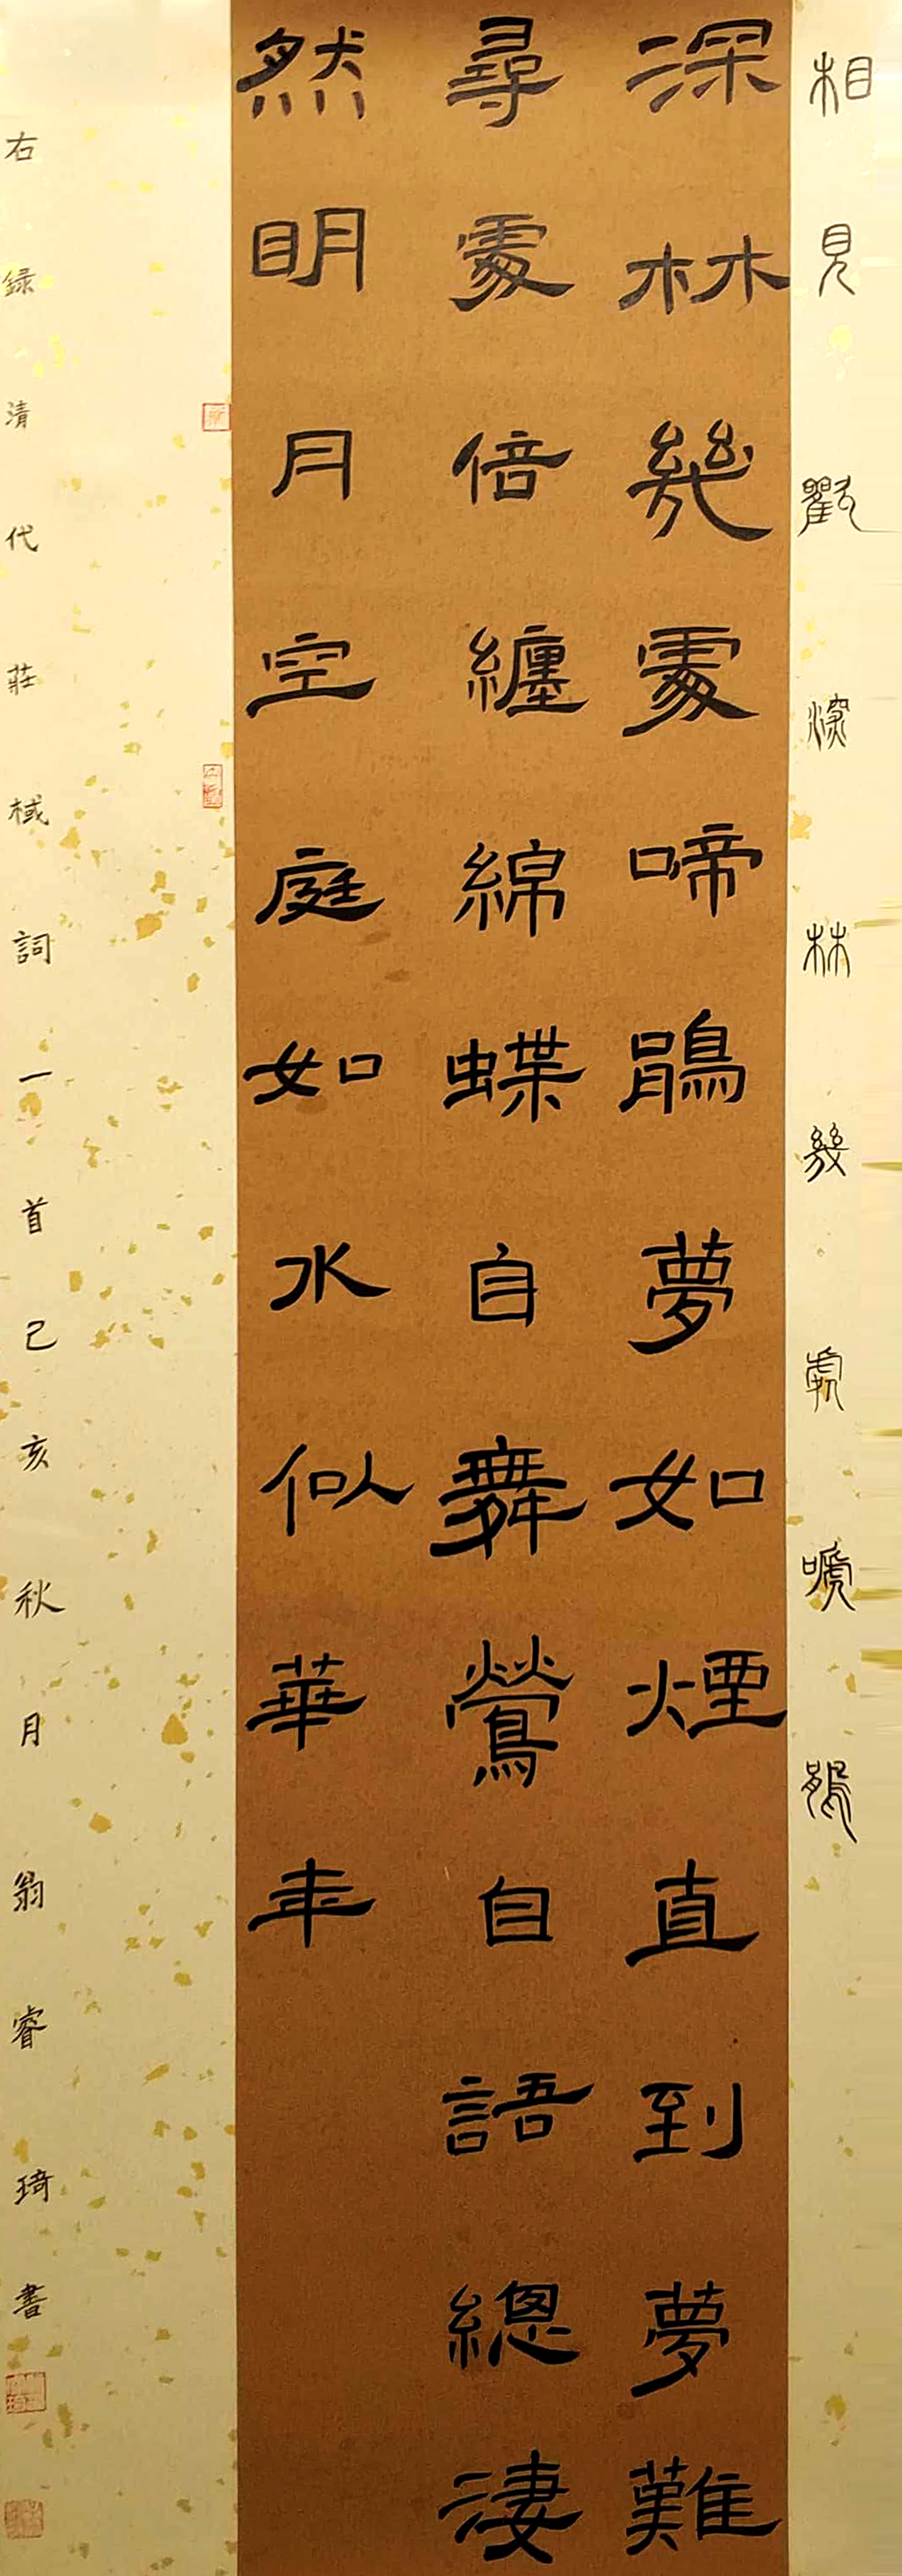 相見歡深林幾處嗁鵑
深林幾處啼鵑夢如煙直到夢難
尋處倍纏綿蝶自舞鶯自語總淒
然明月空庭如水似華年
右録清代莊棫詞一首己亥秋月翁睿琦書